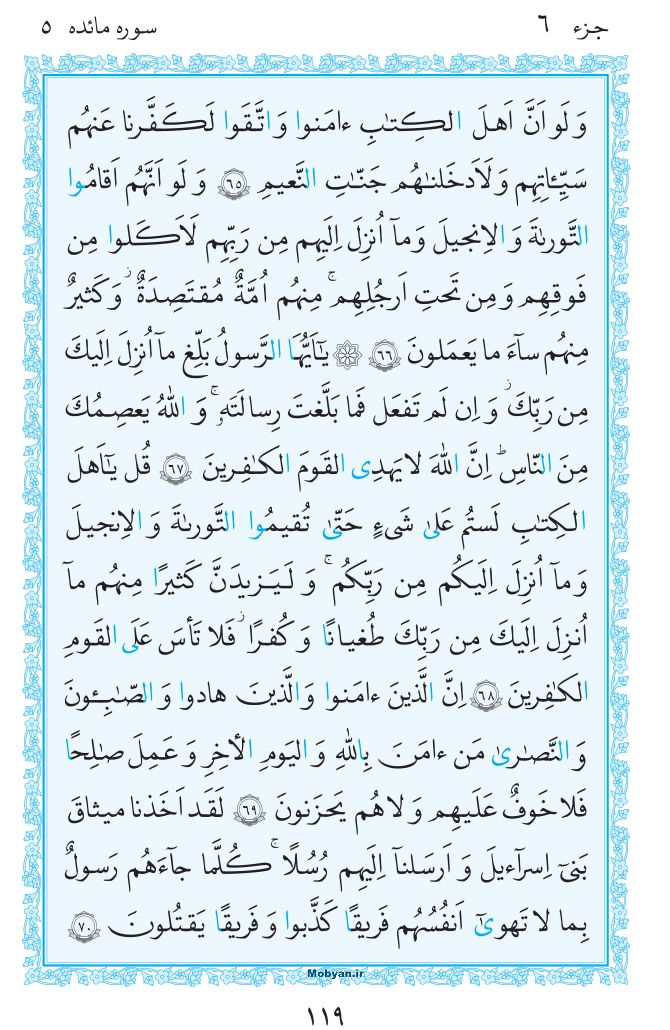 جزء ٦ سوره مائده ٥
وَ لَو اَنَّ اَهلَ الكِتٰبِ ءامَنوا وَ اتَّقَوا لَكَفَّرنا عَنهُم
سَيِّـٔاتِهِم وَ لَاَدخَلنٰهُم جَنّٰتِ النَّعيمِ ﴿٦٥﴾ وَ لَو اَنَّهُم اَقامُوا
التَّورىٰةَ وَ الاِنجيلَ وَ مآ اُنزِلَ اِلَيهِم مِن رَبِّهِم لَاَكَلوا مِن
فَوقِهِم وَ مِن تَحتِ اَرجُلِهِم ۚ مِنهُم اُمَّةٌ مُقتَصِدَةٌ ۖ وَ كَثيرٌ
مِنهُم سآءَ ما يَعمَلونَ ﴿٦٦﴾ ۞ يٰٓاَيُّهَا الرَّسولُ بَلِّغ مآ اُنزِلَ اِلَيكَ
مِن رَبِّكَ ۖ وَ اِن لَم تَفعَل فَما بَلَّغتَ رِسالَتَهۥ ۚ وَ اللّٰهُ يَعصِمُكَ
مِنَ النّاسِ ۗ اِنَّ اللّٰهَ لا يَهدِى القَومَ الكـٰفِرينَ ﴿٦٧﴾ قُل يٰٓاَهلَ
الكِتٰبِ لَستُم عَلىٰ شَىءٍ حَتّىٰ تُقيمُوا التَّورىٰةَ وَ الاِنجيلَ
وَ مآ اُنزِلَ اِلَيكُم مِن رَبِّكُم ۗ وَ لَيَزيدَنَّ كَثيرًا مِنهُم مآ
اُنزِلَ اِلَيكَ مِن رَبِّكَ طُغيانًا وَ كُفرًا ۖ فَلا تَأسَ عَلَى القَومِ
الكـٰفِرينَ ﴿٦٨﴾ اِنَّ الَّذينَ ءامَنوا وَ الَّذينَ هادوا وَ الصّٰبِـٔونَ
وَ النَّصٰرىٰ مَن ءامَنَ بِاللّٰهِ وَ اليَومِ الأخِرِ وَ عَمِلَ صٰلِحًا
فَلا خَوفٌ عَلَيهِم وَ لا هُم يَحزَنونَ ﴿٦٩﴾ لَقَد اَخَذنا ميثاقَ
بَنىٓ اِسرآءيلَ وَ اَرسَلنآ اِلَيهِم رُسُلًا ۖ كُلَّما جآءَهُم رَسولٌ
بِما لا تَهوىٰٓ اَنفُسُهُم فَريقًا كَذَّبوا وَ فَريقًا يَقتُلونَ ﴿٧٠﴾
Mobyan.ir
١١٩